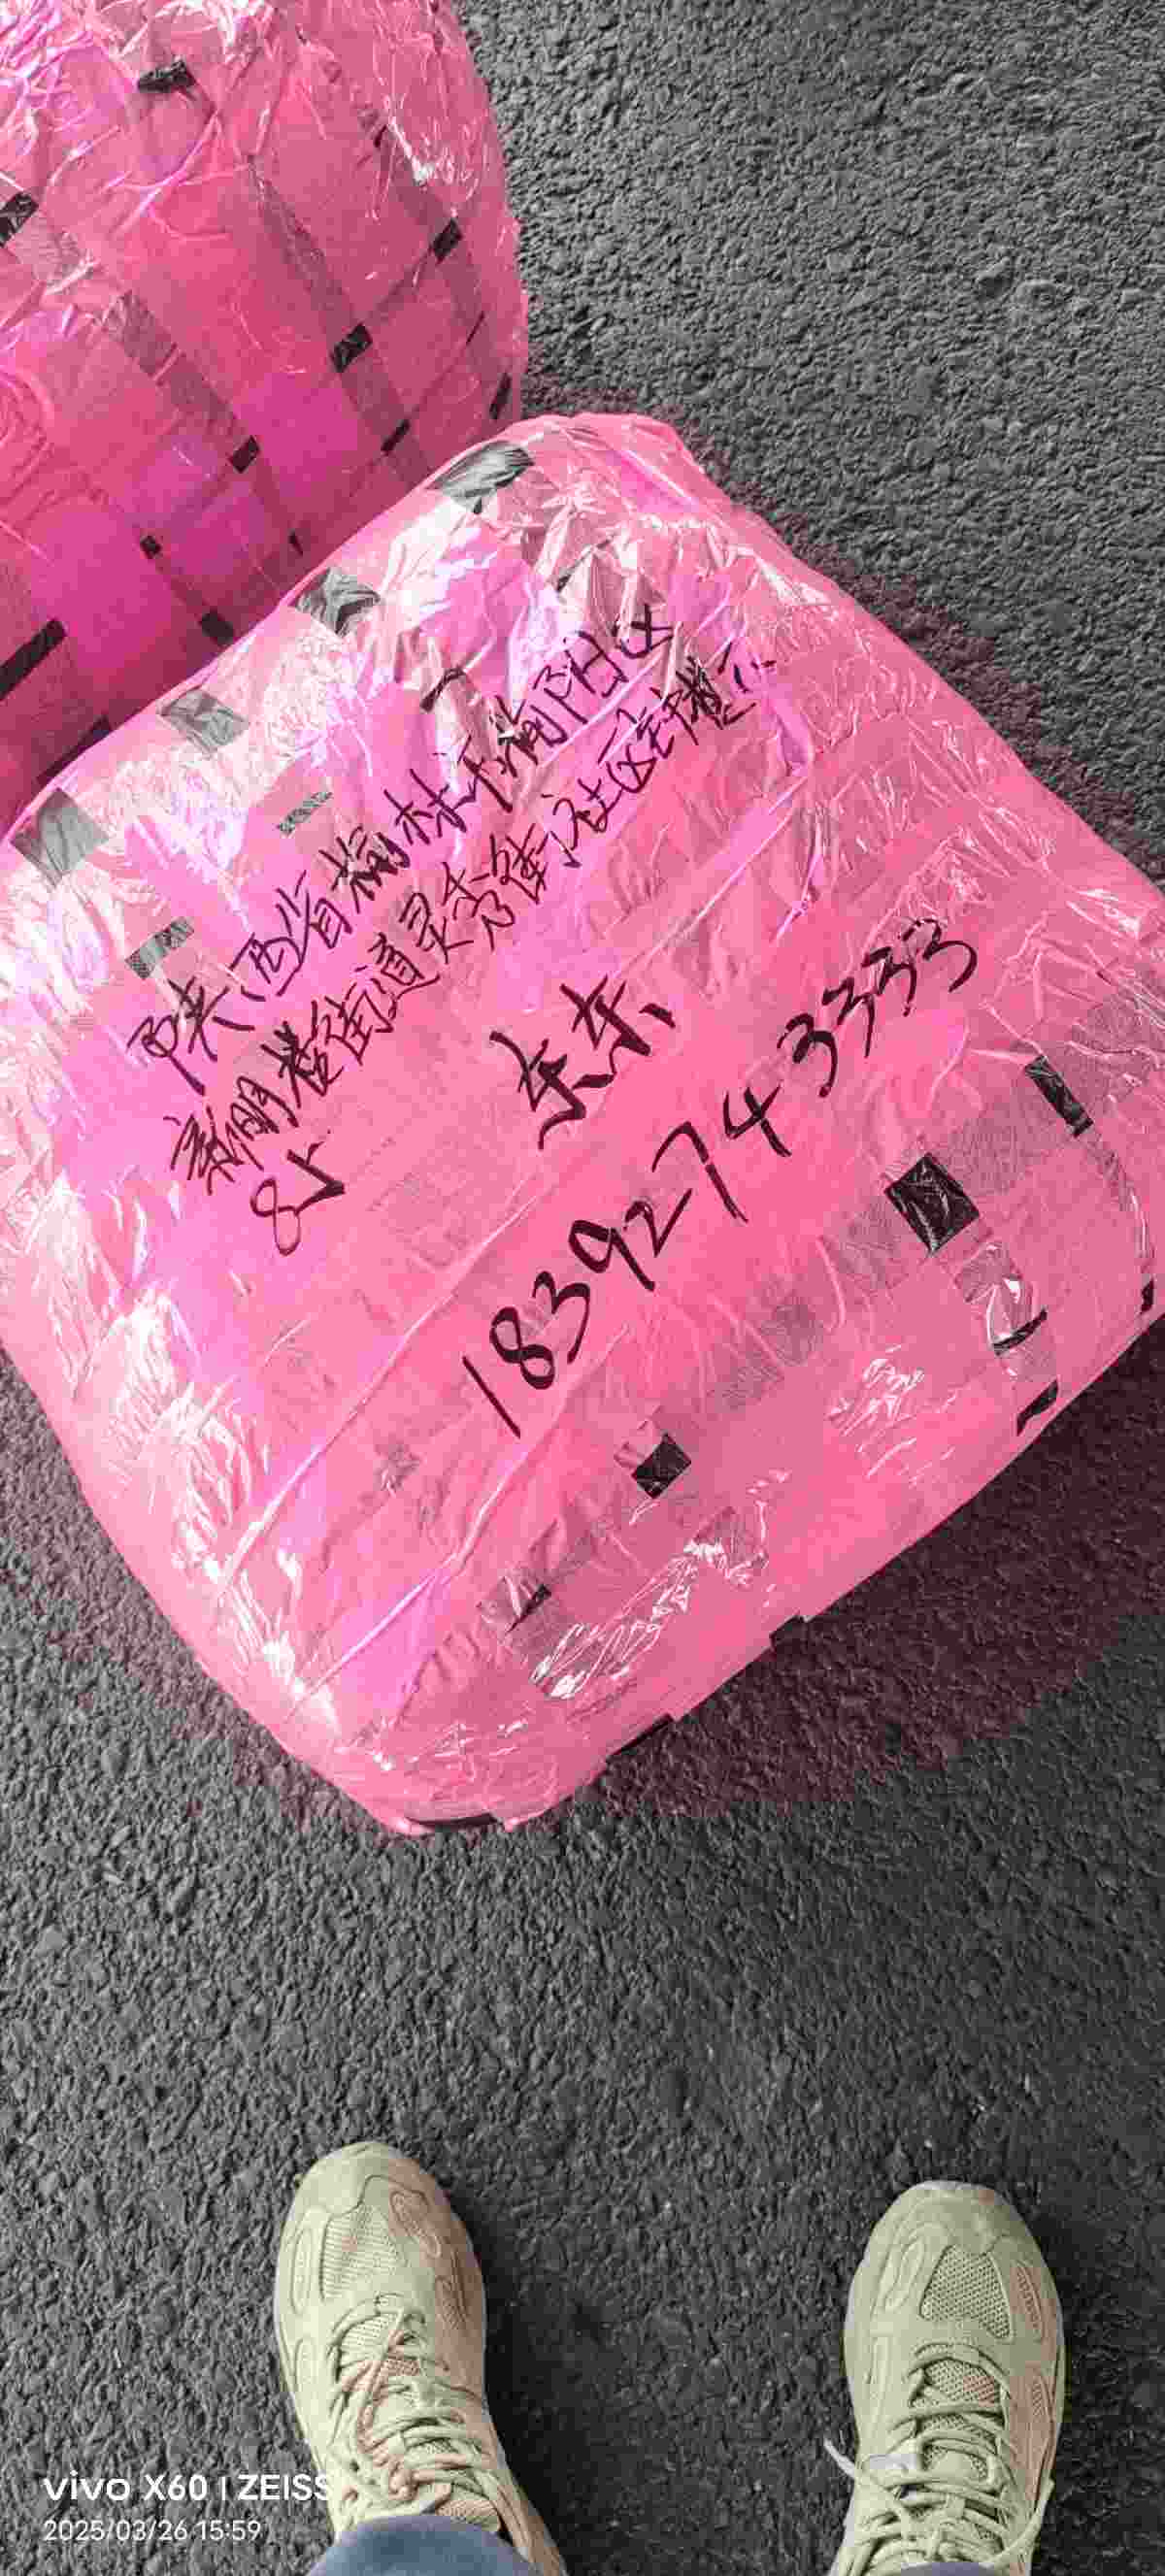 陕西省榆林市榆阳区
新明楼街道灵秀佳苑社区宅中楼三
8号
东东
18392743333
vivo X60 | ZEISS
2025/03/26 15:59